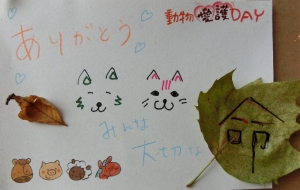 動物愛護DAY
ありがとう
みんな
大切な
命